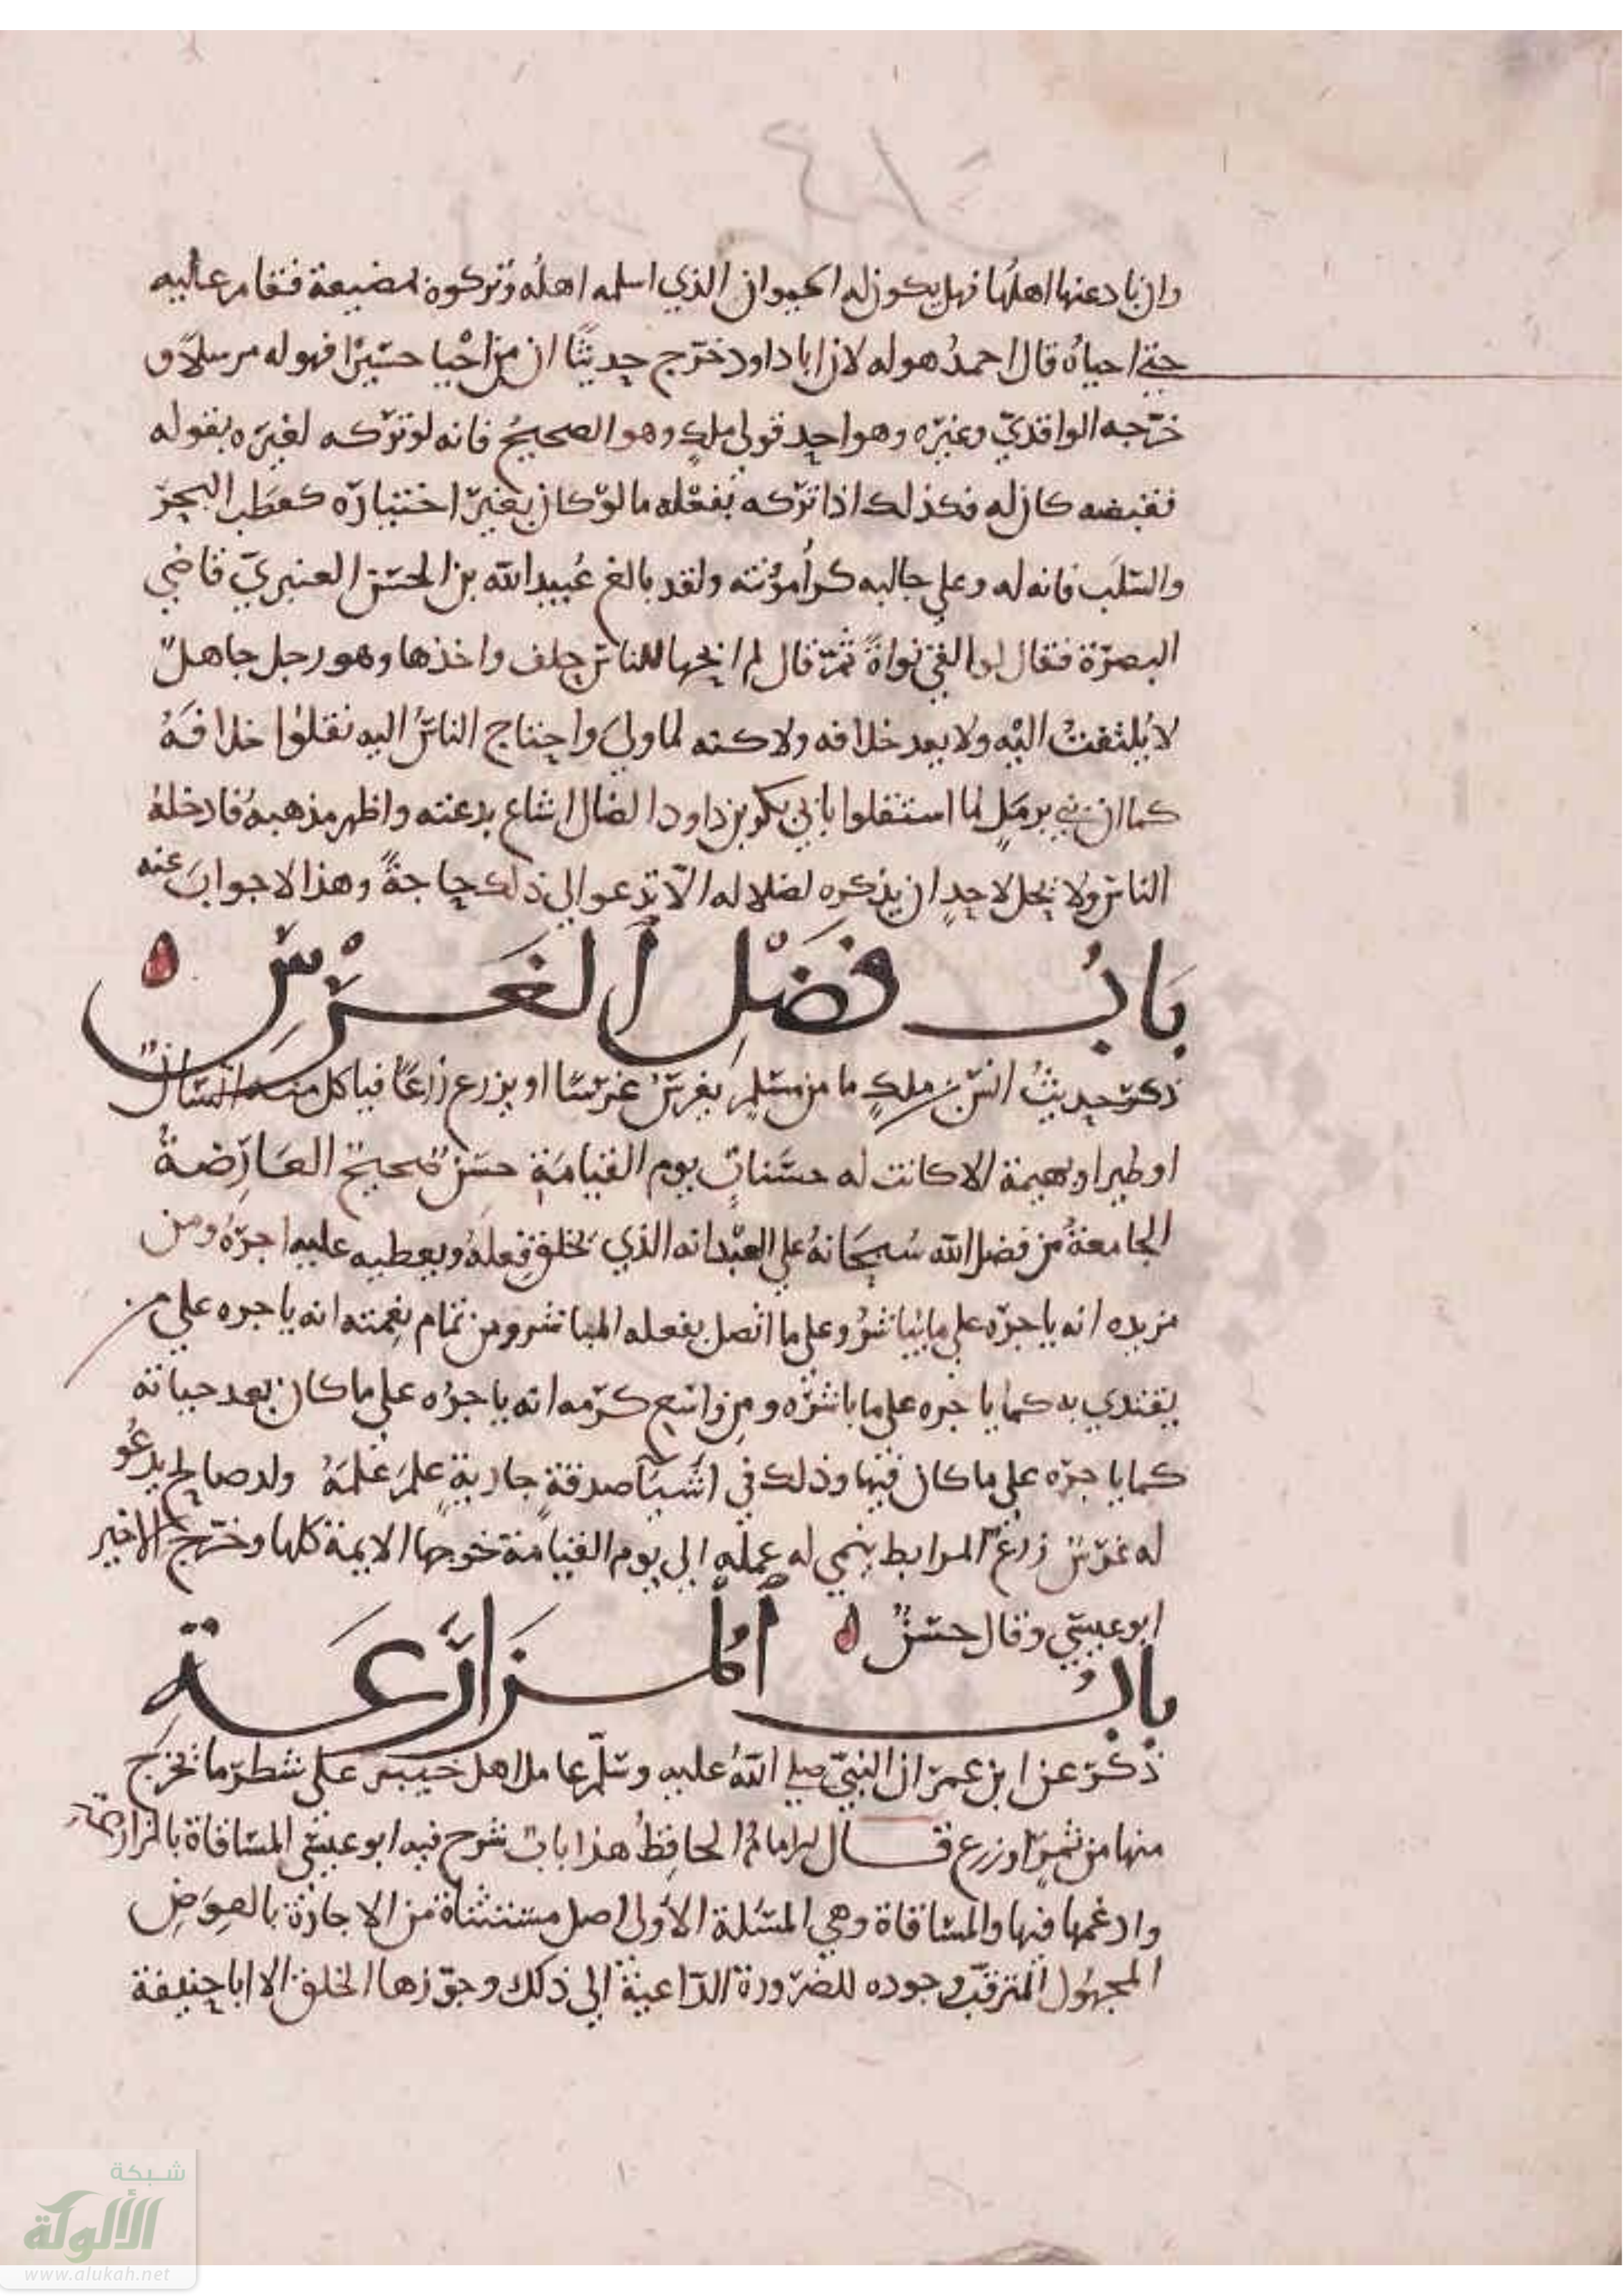 وان باد عنها اهلها فهل يكون له الحيوان الذي اسلمه اهله وتركوه لمضيعة فقام عليه
حتى احياه قال احمد هو له لان ابا داود خرج حديثا ان من احيا حسيرا فهو له مرسلا و
خرجه الواقدي وغيره وهو احد قولي ملك وهو الصحيح فانه لو تركه لغيره بقوله
فقبضه كان له فكذلك اذا تركه بفعله ما لو كان بغير اختياره كعطب البحر
والسلب فانه له وعلي جالبه كرا مؤنته ولقد بالغ عبيد الله بن الحسن العنبري قاضي
البصرة فقال لو القي نواة ثم قال لم ابحها للناس حلف واخذها وهو رجل جاهل
لا يلتفت اليه ولا يعد خلافه ولاكنه لما ولي واحتاج الناس اليه نقلوا خلافه
كما ان بني برمك لما استقلوا بابي بكر بن داود الضال اشاع بدعته واظهر مذهبه فادخله
الناس ولا يحل لاحد ان يذكره لضلاله الا تدعوا الي ذلك حاجة وهذا لا جواب عنه
باب فضل الغرس ه
ذكر حديث انس بن ملك ما من مسلم يغرس غرسا او يزرع زرعا فياكل منه انسان
او طير او بهيمة الا كانت له حسنات يوم القيامة حسن صحيح العارضة
الجامعة من فضل الله سبحانه علي العبد انه الذي يخلق فعله ويعطيه عليه اجره ومن
مزيده انه ياجره علي ما يباشر وعلي ما اتصل بفعله المباشر ومن تمام نعمته انه ياجره علي من
يقتدي به كما ياجره علي ما باشره ومن واسع كرمه انه ياجره علي ما كان بعد حياته
كما ياجره علي ما كان فيها وذلك في اشيا صدقة جارية علم علمه ولد صالح يدعو
له غرس زرع المرابط ينمي له عمله الي يوم القيامة خرجها الايمة كلها وخرج الاخير
ابو عيسي وقال حسن ه
باب المزارعة
ذكر عن ابن عمر ان النبي صلي الله عليه وسلم عامل اهل خيبر علي شطر ما يخرج
منها من ثمر او زرع قال الامام الحافظ هذا باب شرح فيه ابو عيسي المساقاة بالمزارعة
وادغمها فيها والمساقاة وهي المسلة الاولي اصل مستثناة من الاجارة بالعوض
المجهول المترقب وجوده للضرورة الداعية الي ذلك وجوزها الخلق الا ابا حنيفة
شبكة
الألوكة
www.alukah.net